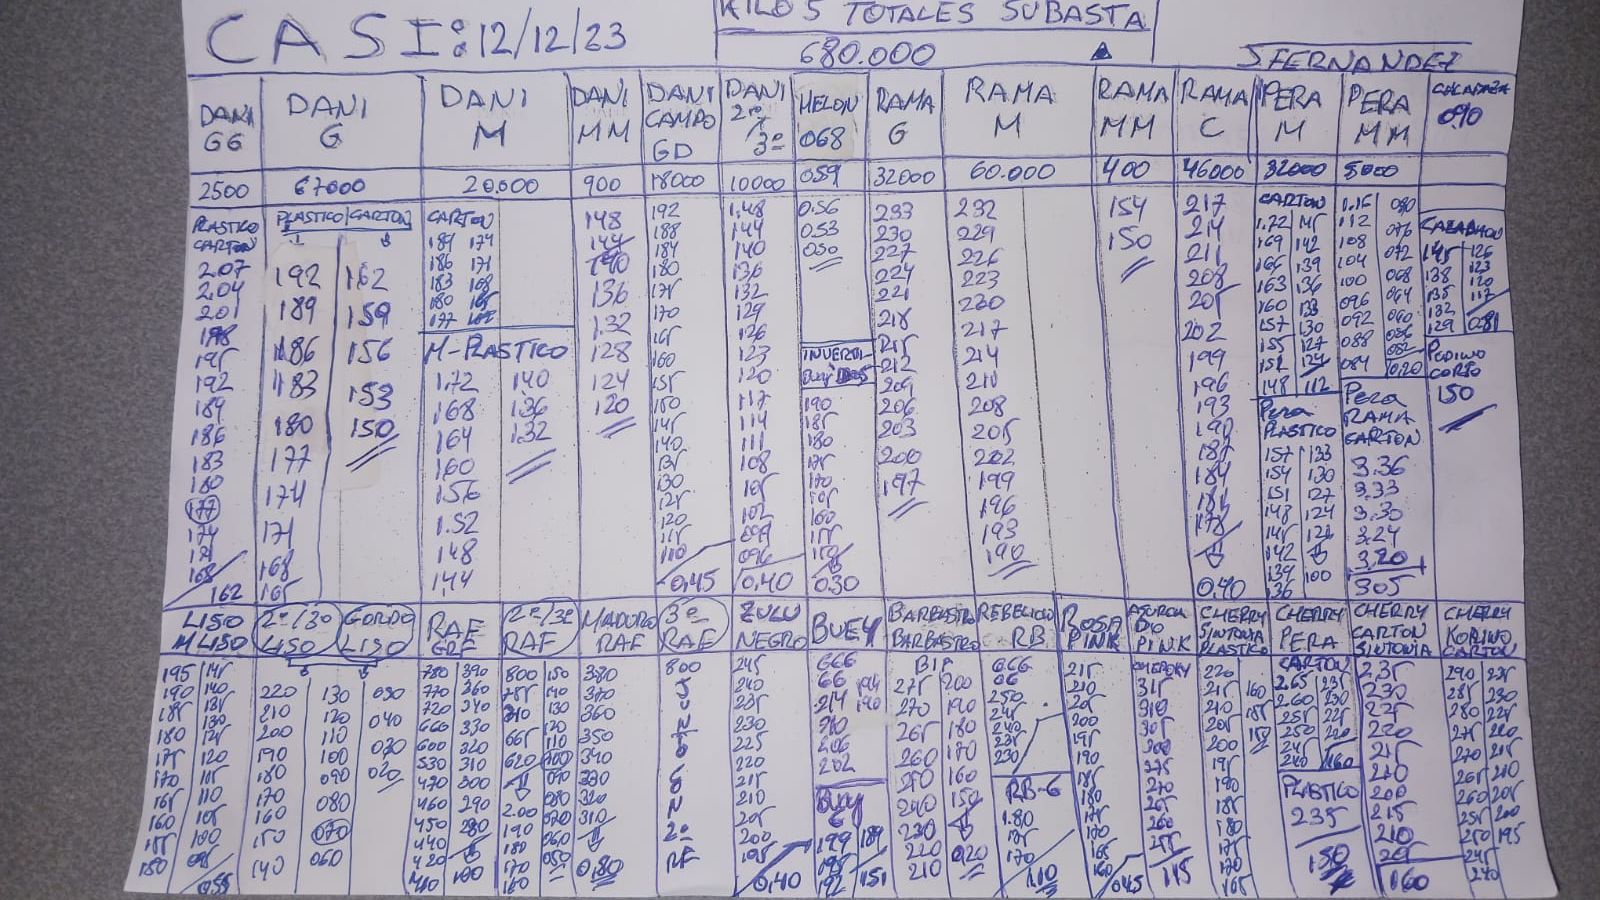 CASI: 12/12/23
KILOS TOTALES SUBASTA
680.000
S FERNANDEZ
DANI GG
DANI G
DANI M
DANI MM
DANI CAMPO GD
DANI 2ª Y 3ª
MELON 068
RAMA G
RAMA M
RAMA MM
RAMA C
PERA M
PERA MM
CALABAZA 090
2500
67000
20.000
900
18000
10000
059
32000
60.000
400
46000
32000
5000
PLASTICO CARTON
2.07
2.04
201
198
195
192
189
186
183
180
177
174
171
168
162
PLASTICO CARTON
192 162
189 159
186 156
183 153
180 150
177
174
171
168
165
CARTON
189 174
186 171
183 168
180 165
177 162
M-PLASTICO
1.72 140
168 136
164 132
160
156
1.52
148
144
148
144
140
136
132
128
124
120
192
188
184
180
175
170
165
160
155
150
145
140
135
130
125
120
115
110
0,45
1.48
144
140
136
132
129
126
123
120
117
114
111
108
105
102
099
096
0,40
0.56
0.53
050
INVERTI
190
185
180
175
170
165
160
155
150
0.30
233
230
227
224
221
218
215
212
209
206
203
200
197
232
229
226
223
220
217
214
211
208
205
202
199
196
193
190
154
150
217
214
211
208
205
202
199
196
193
190
187
184
181
178
0,40
CARTON
1.72 145
169 142
166 139
163 136
160 133
157 130
155 127
152 124
148 112
Pera PLASTICO
157 133
154 130
151 127
148 124
145 121
142
139 100
136
1.16 080
112 076
108 072
104 068
100 064
096 060
092 056
088 082
084 0,20
Pera RAMA CARTON
3.36
3.33
3.30
3.24
3.20
305
CALABACIN
145 126
138 123
135 120
132 117
129 081
PEPINO CORTO
150
LISO M LISO
2ª/3ª LISO
GORDO LISO
RAF GRF
2ª/3ª RAF
MADURO RAF
3ª RAF
ZULU NEGRO
BUEY
BARBASTRO BARBASTRO
REBELION RB
ROSA PINK
ASURCADO PINK
CHERRY SINTONIA PLASTICO
CHERRY PERA
CHERRY CARTON SINTONIA
CHERRY KORINO CARTON
195 145
190 140
185 135
180 130
175 125
170 120
165 115
160 110
155 105
150 100
095
055
220 130 050
210 120 040
200 110 030
190 100 020
180 090
170 080
160 070
150 060
140
780 390
770 360
720 340
660 330
600 320
530 310
470 300
460 290
450 280
440
420 100
410
800 150
785 140
710 130
665 120
620 110
100
090
2.00 080
190 070
180 060
170 050
160
380
370
360
350
340
330
320
310
0,80
800
2ª
RF
245
240
235
230
225
220
215
210
205
200
195
0,40
666
66 194
214 190
210
206
202
Buey 6
199 189
195
192 151
BIP
275 200
270 190
265 180
260 170
250 160
240 150
230
220 0,20
210
666
66
250
245
240
235
230
RB-6
1.80
175
170
1,10
215
210
205
200
195
190
185
180
175
170
165
160
045
CHEPORY
315
310
305
300
275
270
265
260
255
115
220
215 160
210 155
205 150
200
195
190
185
180
175
170
165
CARTON
2.65 235
2.60 230
255 225
250 220
245
240 160
PLASTICO
235
150
2,35
230
225
220
215
210
200
215
210
205
160
290 235
285 230
280 225
275 220
270 215
265 210
260 205
255 200
250 195
245
240